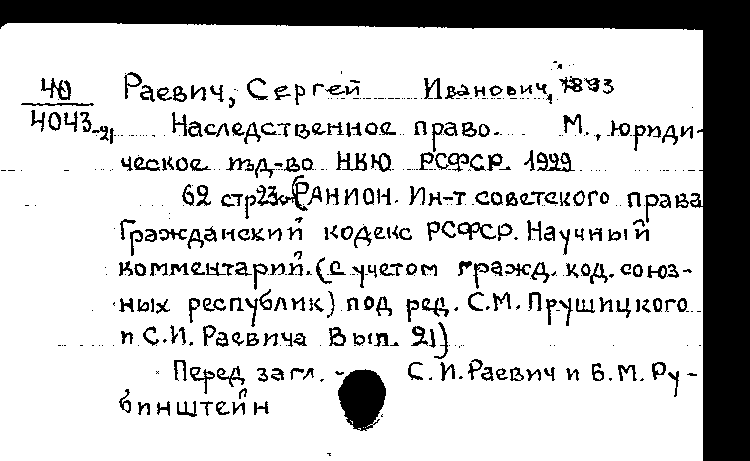 40
4043-21
Раевич, Сергей Иванович, 1893
Наследственное право. М., юриди-
ческое изд-во НКЮ РСФСР. 1929
62 стр 23см (РАНИОН. Ин-т советского права
Гражданский кодекс РСФСР. Научный
комментарий. (с учетом гражд. код. союз-
ных республик) под ред. С.М. Прушицкого
и С.И. Раевича Вып. 21)
Перед загл. - С.И. Раевич и Б.М. Ру-
бинштейн